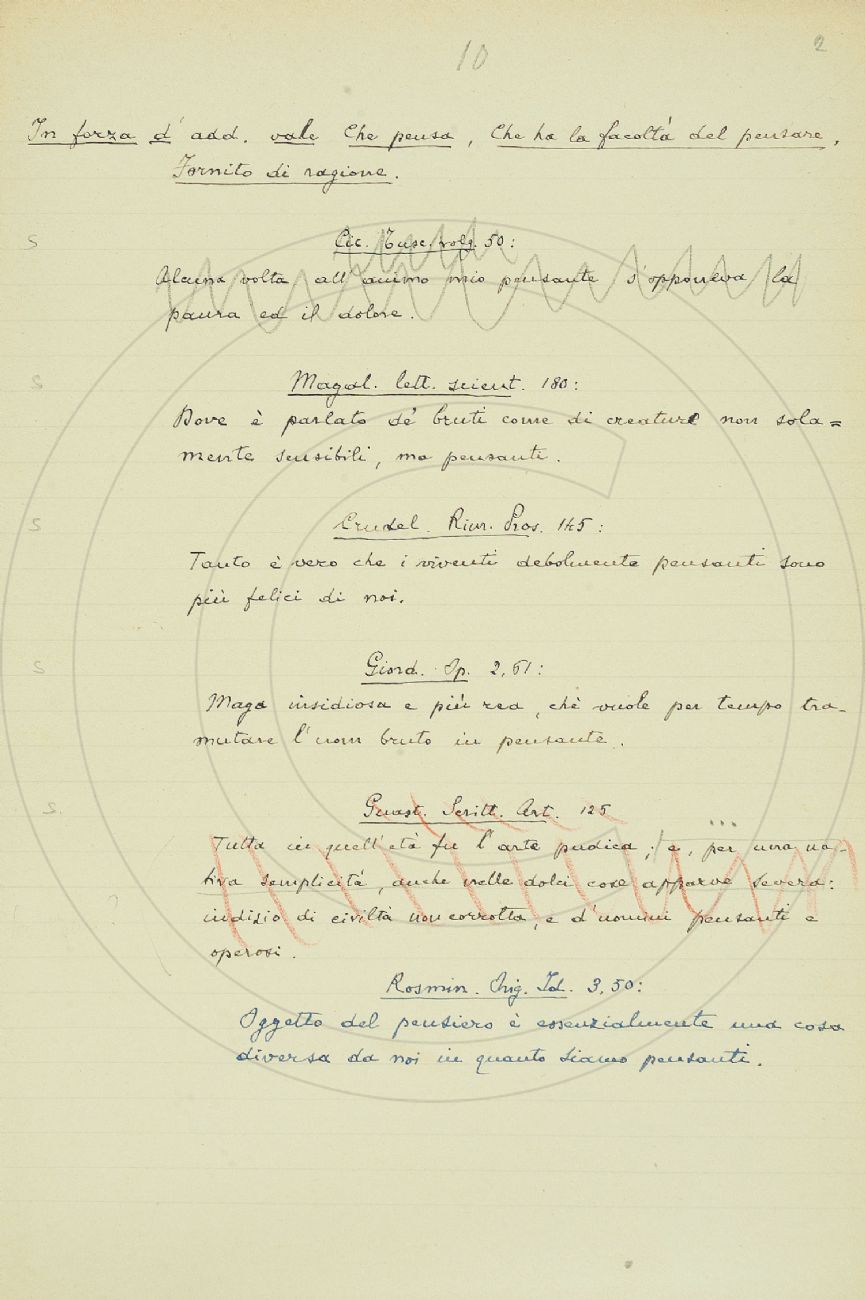 10
2
In forza d' add. vale Che pensa, Che ha la facoltà del pensare,
Fornito di ragione.
S
Cic. Tusc. volg. 50:
Alcuna volta all'animo mio pensante s'opponeva la
paura ed il dolore.
S
Magal. lett. scient. 180:
Dove è parlato de' bruti come di creature non sola=
mente sensibili, ma pensanti.
S
Crudel. Rim. Pros. 145:
Tanto è vero che i viventi debolmente pensanti sono
più felici di noi.
S
Giord. Op. 2, 61:
Maga insidiosa e più rea, chè vuole per tempo tra-
mutare l'uom bruto in pensante.
S.
Guast. Scritt. Art. 125
Tutta in quell'età fu l'arte pudica; e, per una na-
tiva semplicità, anche nelle dolci cose apparve severa:
indizio di civiltà non corrotta, e d'uomini pensanti e
operosi.
Rosmin. Orig. Id. 3, 50:
Oggetto del pensiero è essenzialmente una cosa
diversa da noi in quanto siamo pensanti.